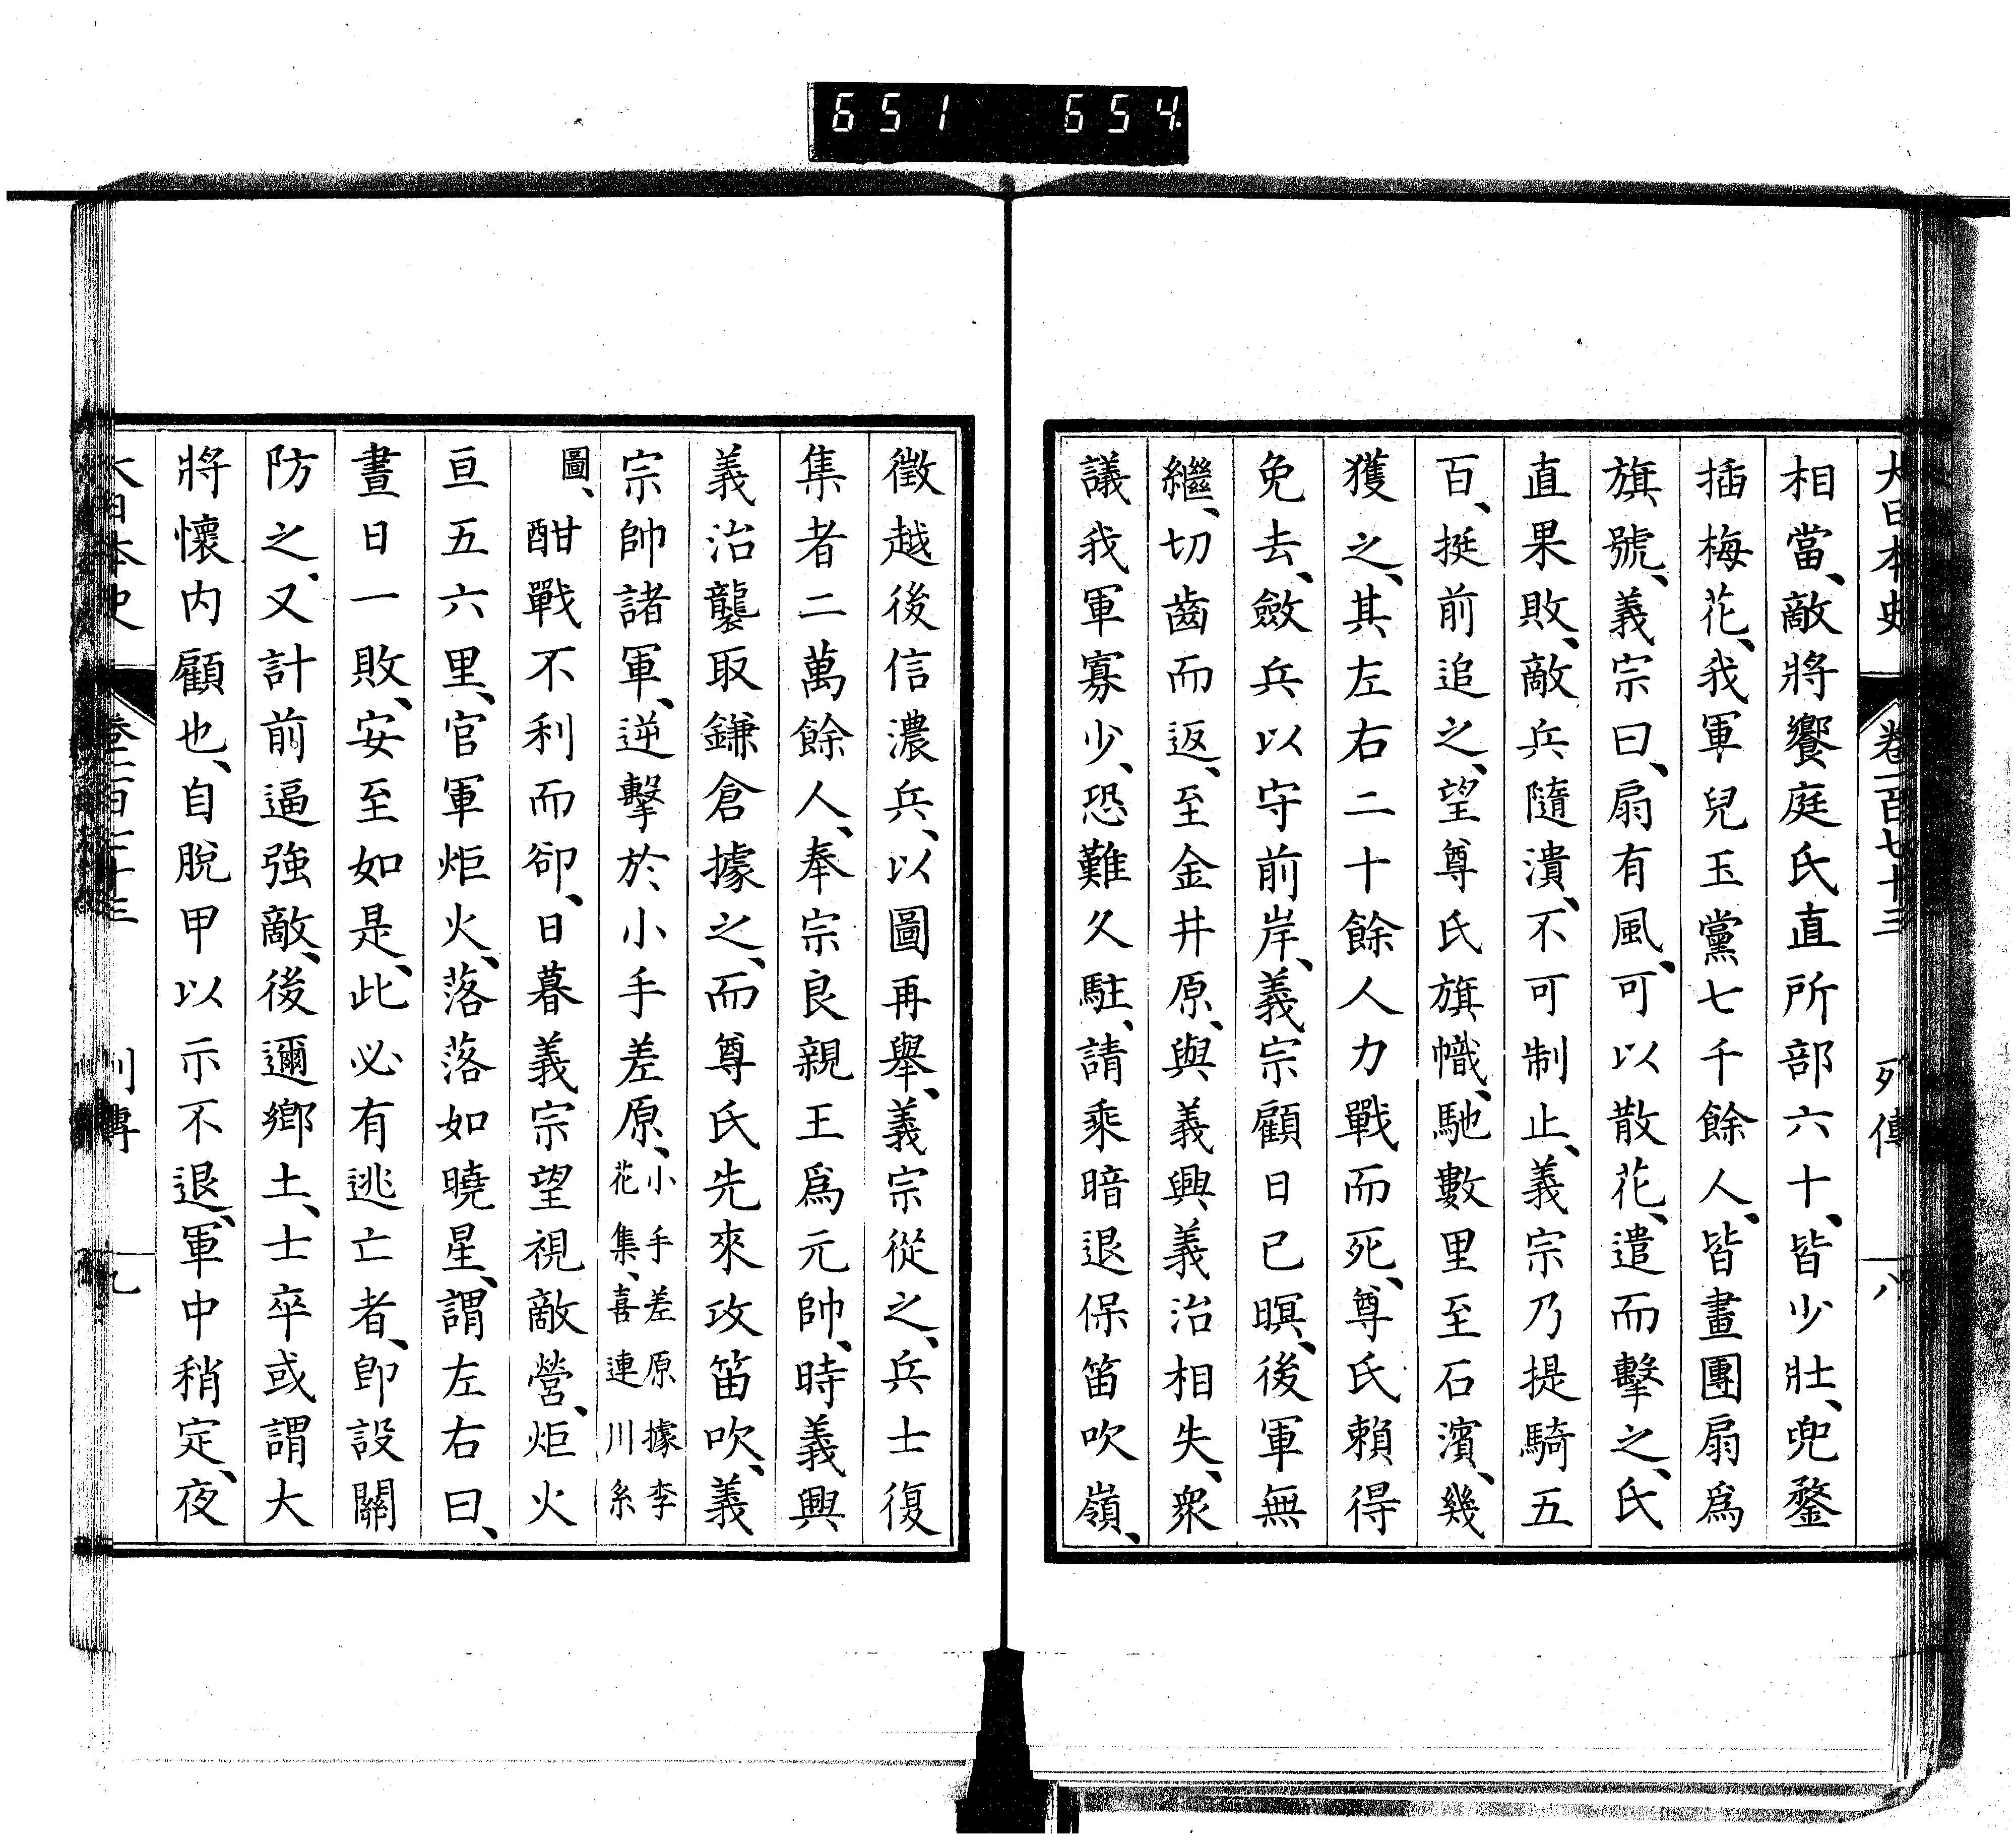 651 654
大日本史 卷一百七十三 列傳 八
相當、敵將饗庭氏直所部六十、皆少壯、兜鍪
插梅花、我軍兒玉黨七千餘人、皆畫團扇爲
旗號、義宗曰、扇有風、可以散花、遣而擊之、氏
直果敗、敵兵隨潰、不可制止、義宗乃提騎五
百、挺前追之、望尊氏旗幟、馳數里至石濱、幾
獲之、其左右二十餘人力戰而死、尊氏賴得
免去、斂兵以守前岸、義宗顧日已暝、後軍無
繼、切齒而返、至金井原、與義興義治相失、衆
議我軍寡少、恐難久駐、請乘暗退保笛吹嶺、
徵越後信濃兵、以圖再舉、義宗從之、兵士復
集者二萬餘人、奉宗良親王爲元帥、時義興
義治襲取鎌倉據之、而尊氏先來攻笛吹、義
宗帥諸軍、逆擊於小手差原、小手差原據李花集、喜連川系
圖、酣戰不利而卻、日暮義宗望視敵營、炬火
亘五六里、官軍炬火、落落如曉星、謂左右曰、
晝日一敗、安至如是、此必有逃亡者、卽設關
防之、又計前逼強敵、後邇鄉土、士卒或謂大
將懷内顧也、自脫甲以示不退、軍中稍定、夜
大日本史 卷一百七十三 列傳 九